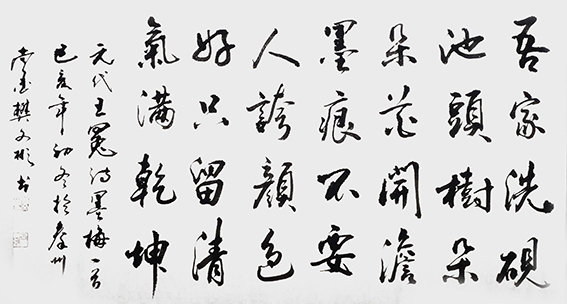 吾家洗硯
池頭樹朵
朵花開澹
墨痕不要
人誇顏色
好只留清
氣滿乾坤
元代王冕詩墨梅一首
己亥年初冬於州
樊文書